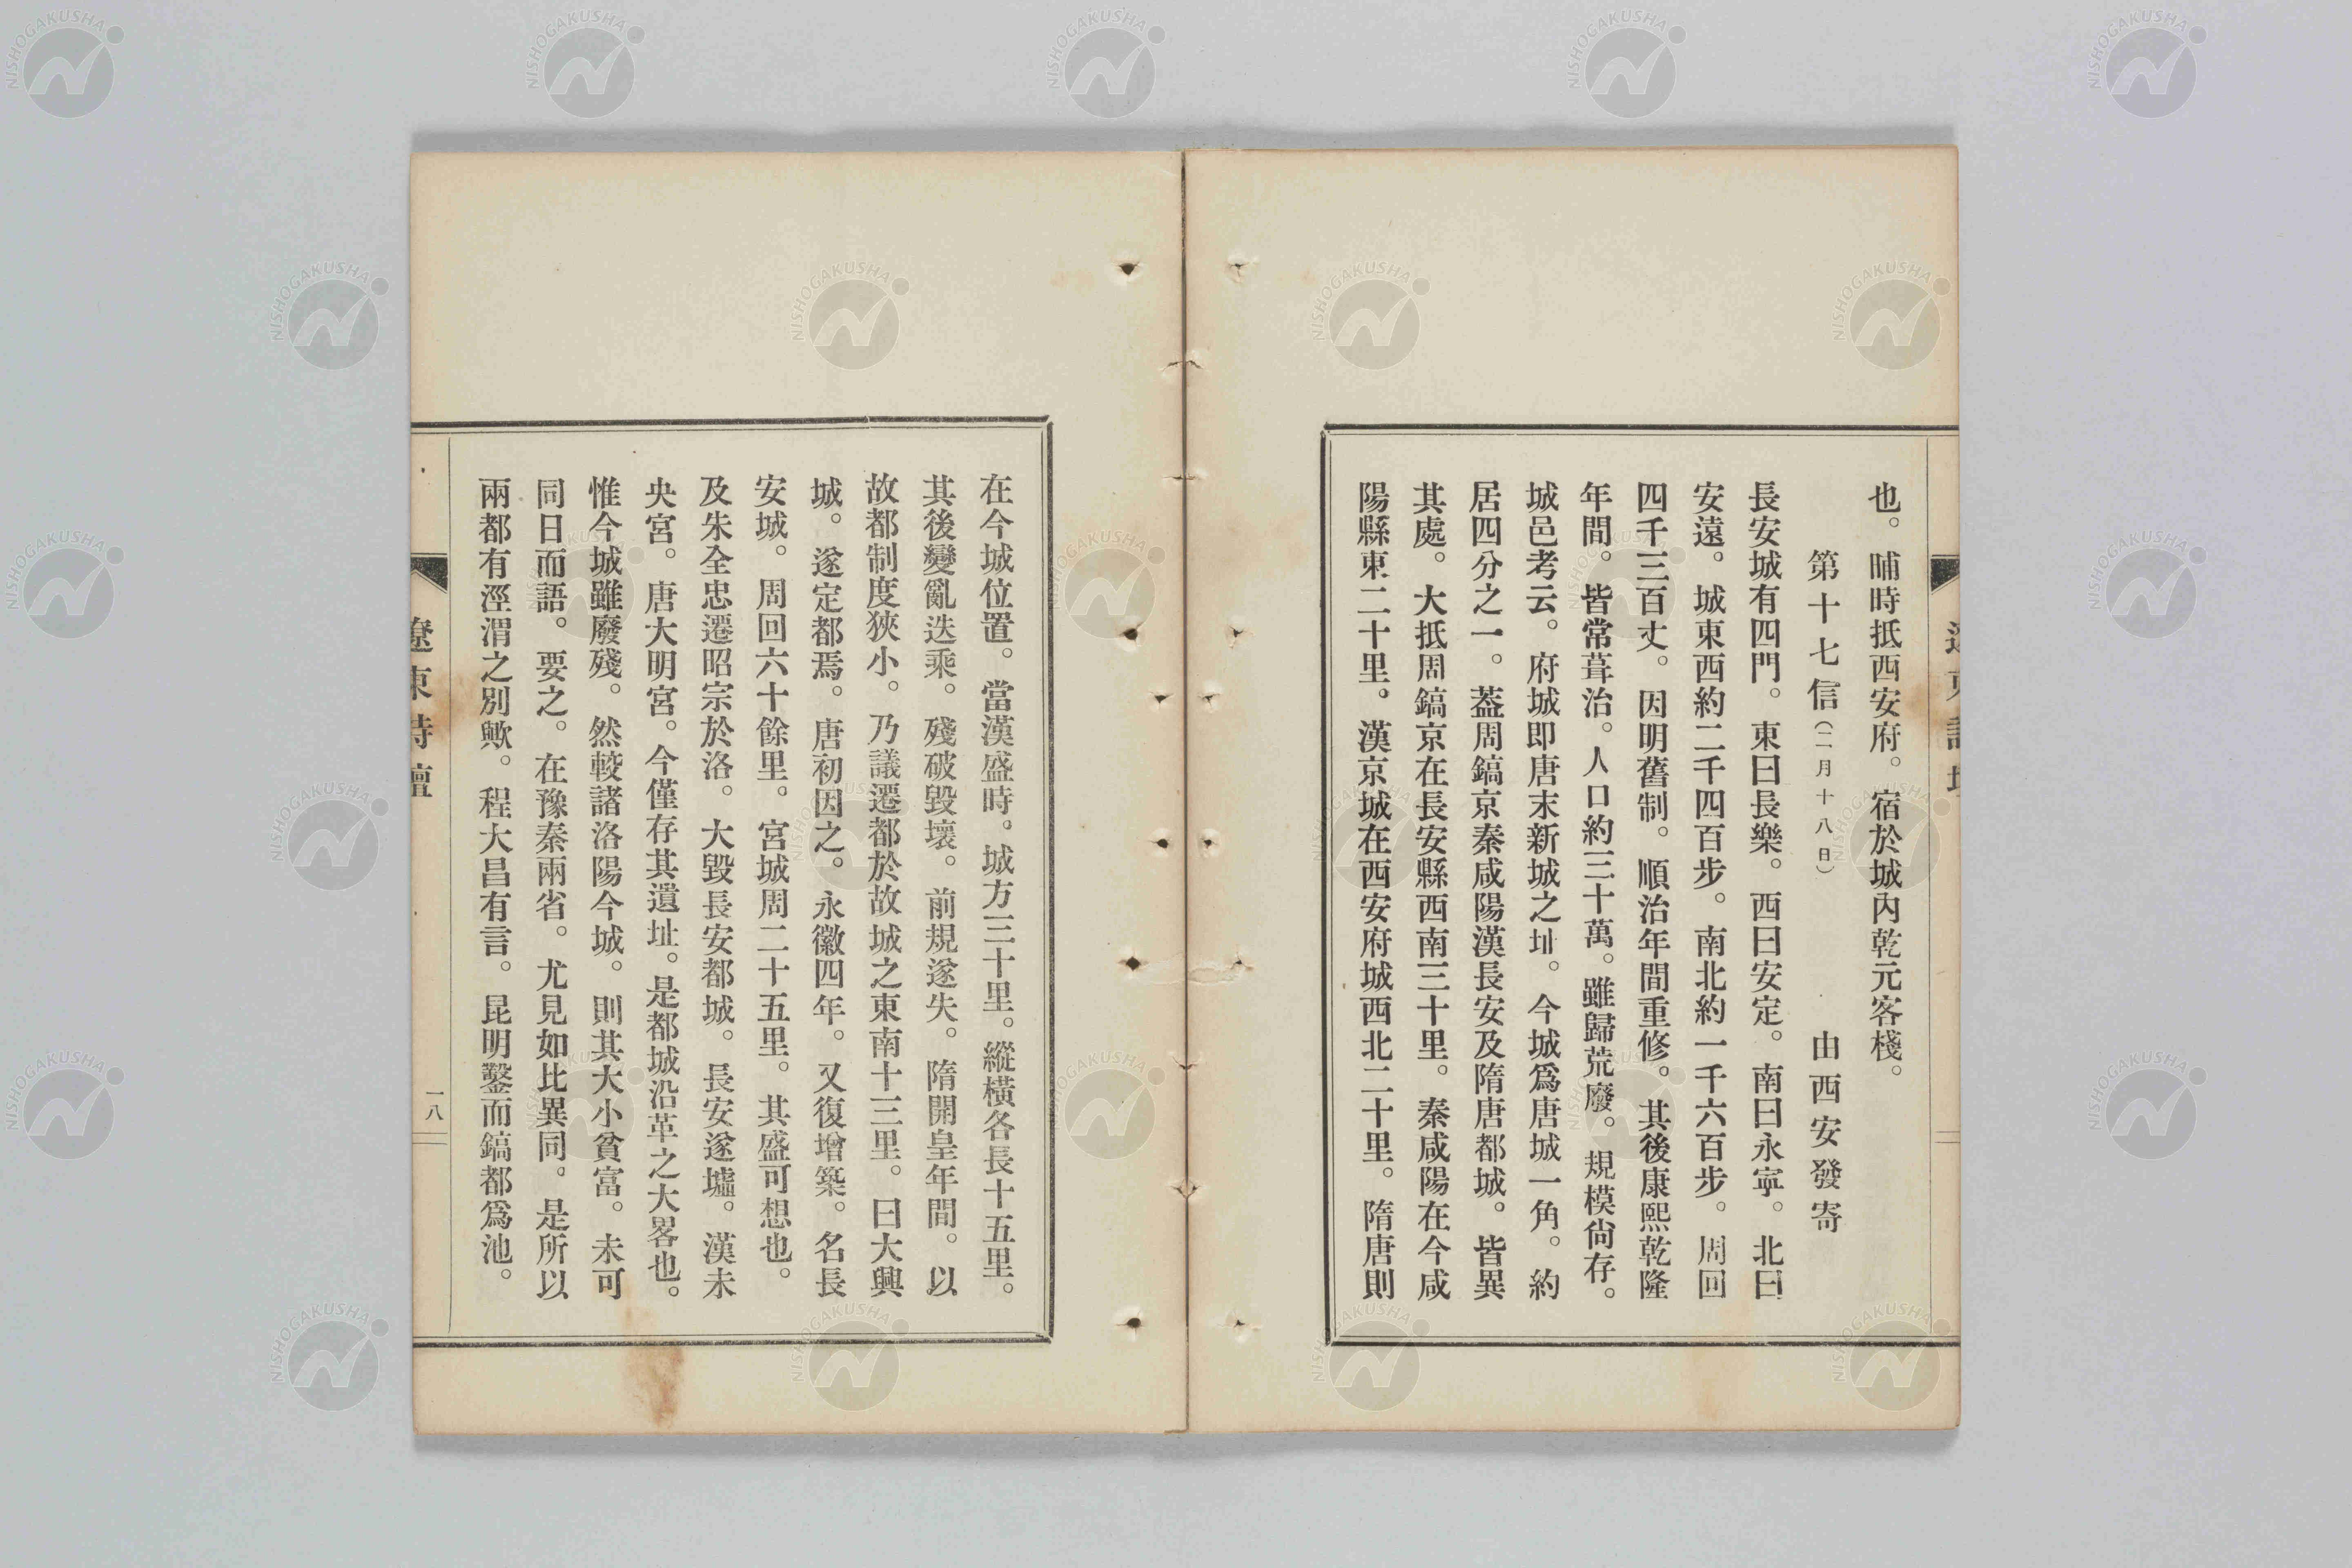 也。晡時抵西安府。宿於城內乾元客棧。
第十七信（二月十八日） 由西安發寄
長安城有四門。東曰長樂。西曰安定。南曰永寧。北曰
安遠。城東西約二千四百步。南北約一千六百步。周回
四千三百丈。因明舊制。順治年間重修。其後康熙乾隆
年間。皆常葺治。人口約三十萬。雖歸荒廢。規模尙存。
城邑考云。府城即唐末新城之址。今城爲唐城一角。約
居四分之一。蓋周鎬京秦咸陽漢長安及隋唐都城。皆異
其處。大抵周鎬京在長安縣西南三十里。秦咸陽在今咸
陽縣東二十里。漢京城在西安府城西北二十里。隋唐則
在今城位置。當漢盛時。城方三十里。縱橫各長十五里。
其後變亂迭乘。殘破毀壞。前規遂失。隋開皇年間。以
故都制度狹小。乃議遷都於故城之東南十三里。曰大興
城。遂定都焉。唐初因之。永徽四年。又復增築。名長
安城。周回六十餘里。宮城周二十五里。其盛可想也。
及朱全忠遷昭宗於洛。大毀長安都城。長安遂墟。漢未
央宮。唐大明宮。今僅存其遺址。是都城沿革之大畧也。
惟今城雖廢殘。然較諸洛陽今城。則其大小貧富。未可
同日而語。要之。在豫秦兩省。尤見如比異同。是所以
兩都有涇渭之別歟。程大昌有言。昆明鑿而鎬都爲池。
遼東詩壇
一八
NISHOGAKUSHA